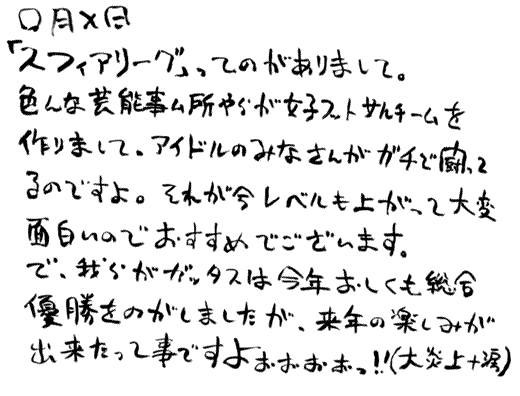 〇月×日
「スフィアリーグ」ってのがありまして。
色んな芸能事ム所やらが女子フットサルチームを
作りまして、アイドルのみなさんがガチで闘って
るのですよ。それが今レベルも上がって大変
面白いのでおすすめでございます。
で、我らがガッタスは今年おしくも総合
優勝をのがしましたが、来年の楽しみが
出来たって事ですよぉおぉおっ!!(大炎上+涙)